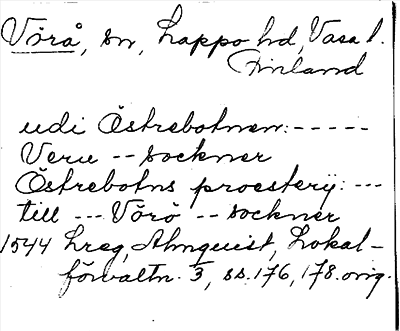 Vörå, sn, Lappo hd, Vasa l.
Finland
udi Östrebotnen: -----
Veru -- sockner
Östrebotns proestery: ---
till --- Vörö -- sockner
1544 Lreg, Almquist, Lokal-
förvaltn. 3, ss. 176, 178. orig.